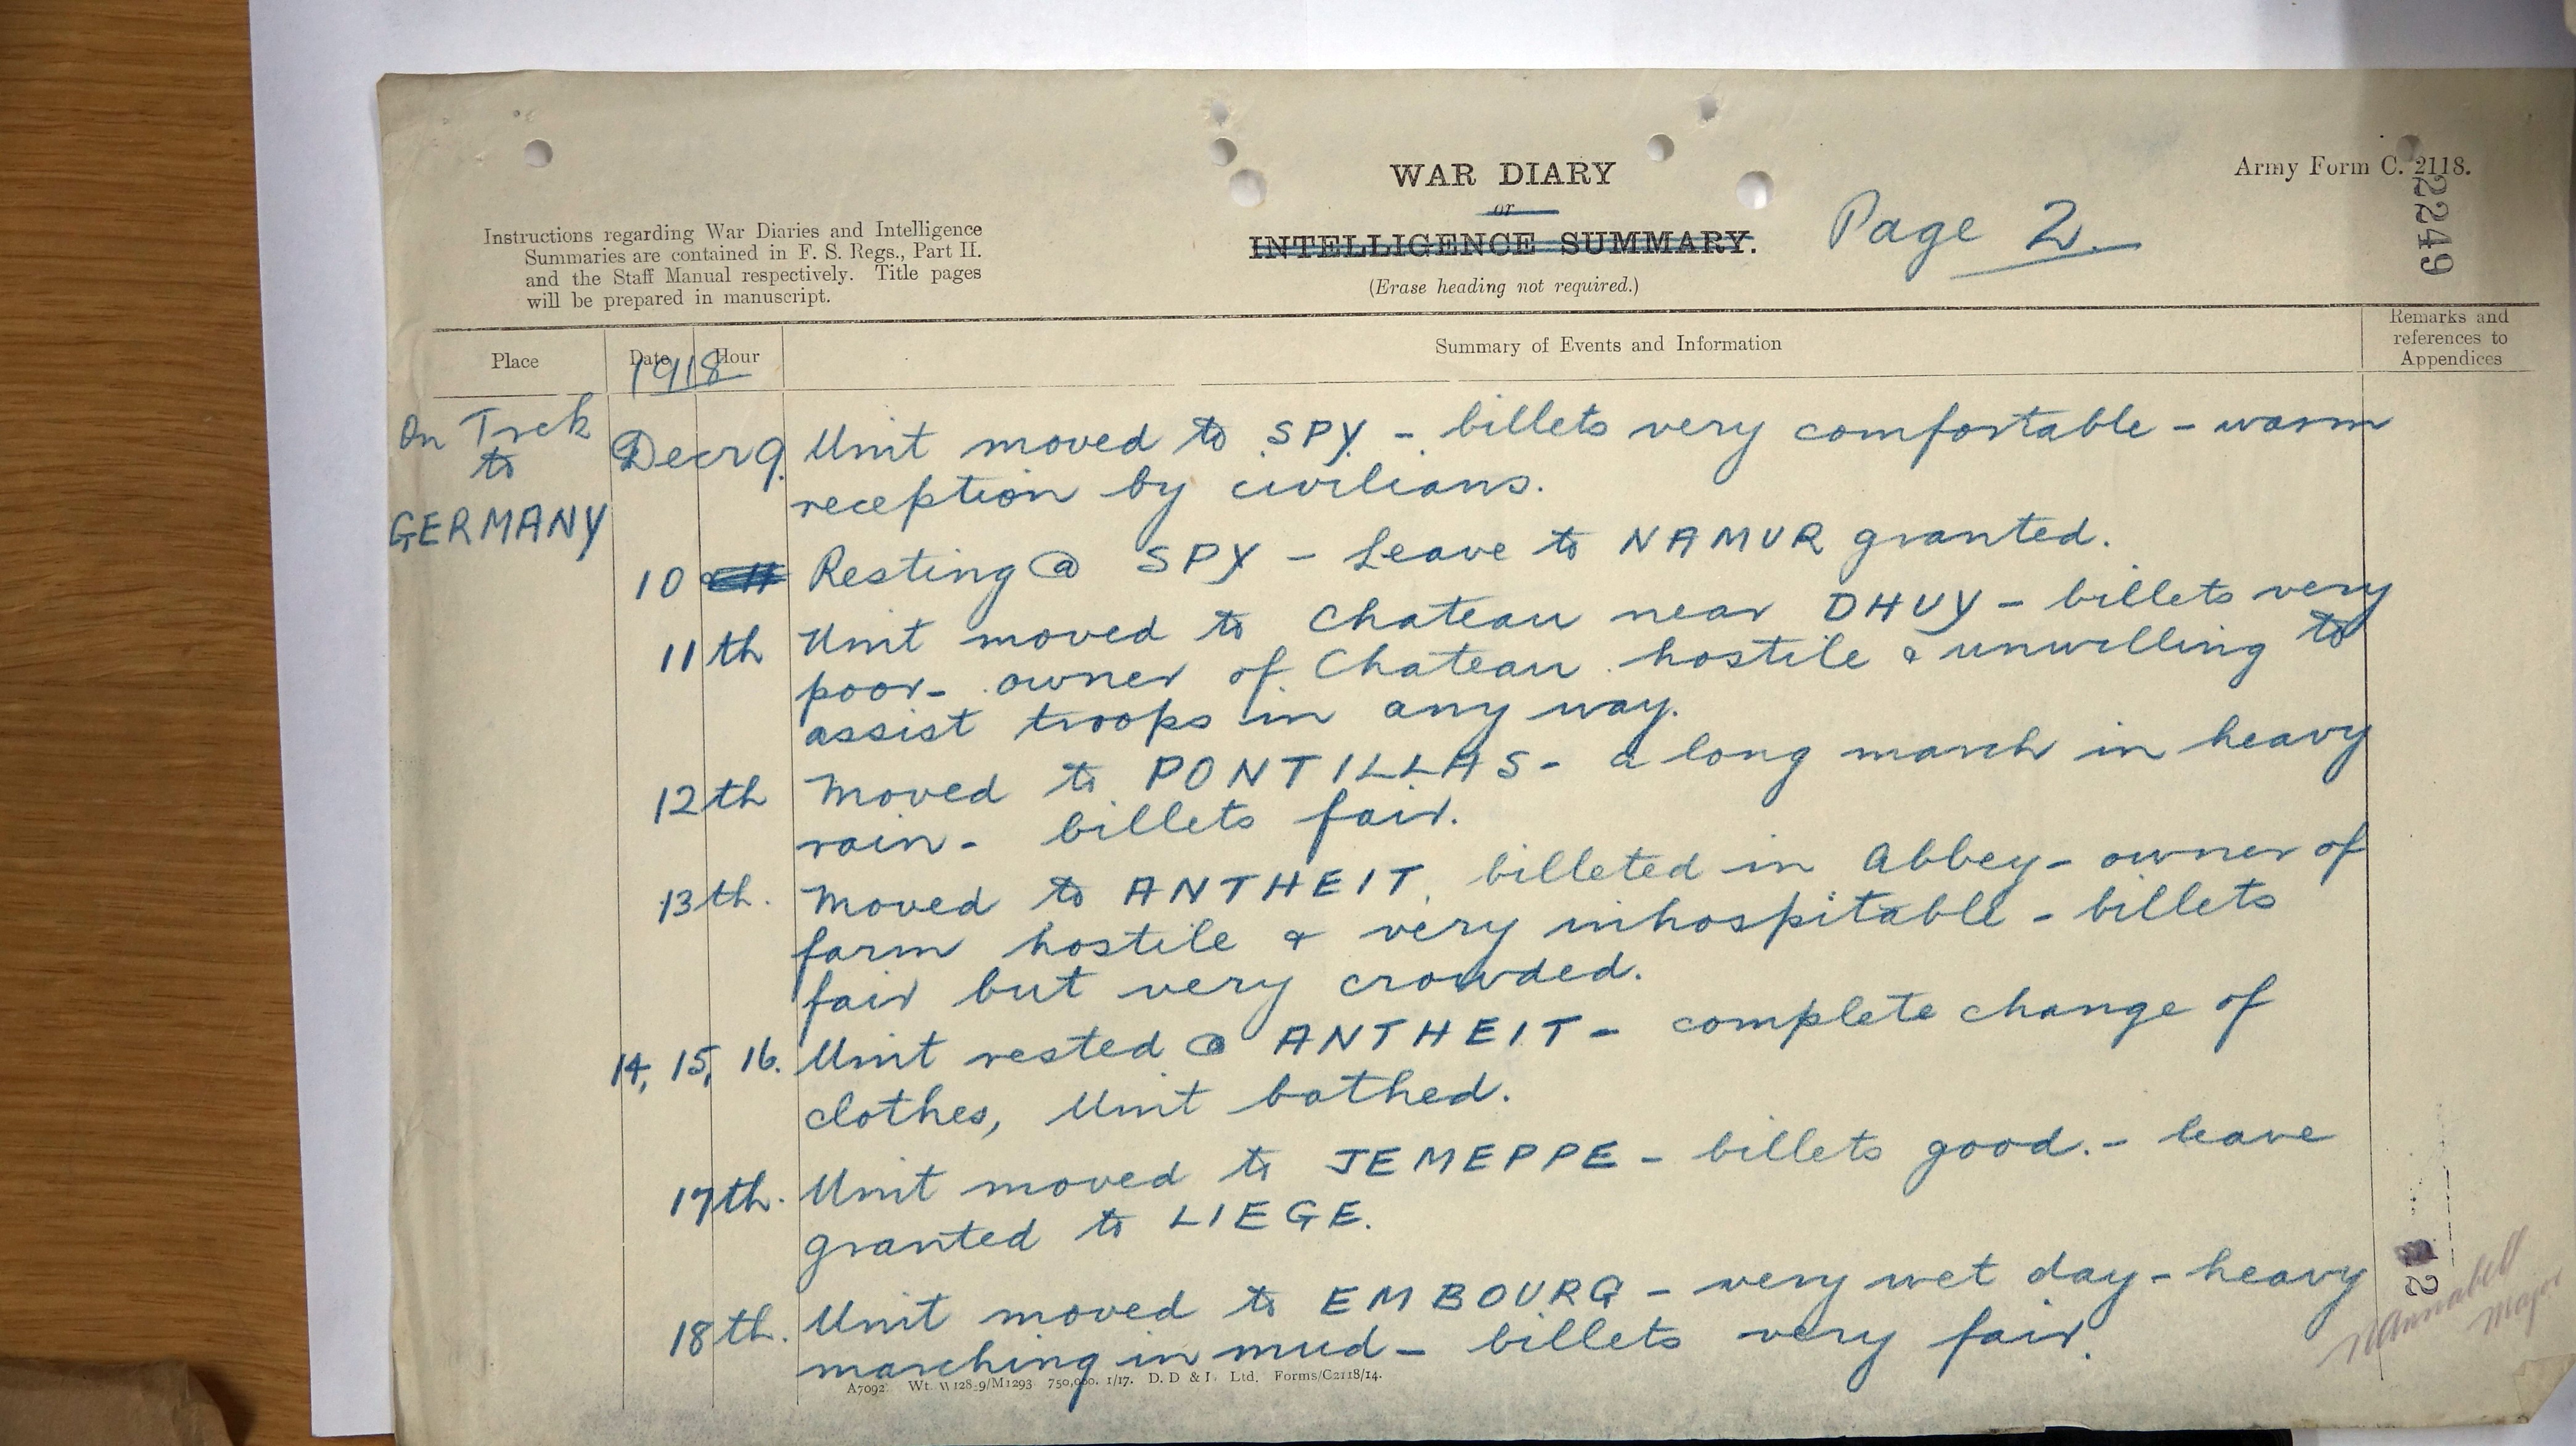 Army Form C. 2118.
2249
WAR DIARY
or
INTELLIGENCE SUMMARY.
(Erase heading not required.)
Page 2.
Instructions regarding War Diaries and Intelligence
Summaries are contained in F. S. Regs., Part II.
and the Staff Manual respectively. Title pages
will be prepared in manuscript.
Place
Date
Hour
1918
Summary of Events and Information
Remarks and
references to
Appendices
On Trek
to
GERMANY
Decr 9. Unit moved to SPY - billets very comfortable - warm
reception by civilians.
10 Resting @ SPY - Leave to NAMUR granted.
11th Unit moved to Chateau near DHUY - billets very
poor - owner of Chateau hostile & unwilling to
assist troops in any way.
12th Moved to PONTILLAS - a long march in heavy
rain - billets fair.
13th. Moved to ANTHEIT billeted in Abbey - owner of
farm hostile & very inhospitable - billets
fair but very crowded.
14, 15, 16. Unit rested @ ANTHEIT - complete change of
clothes, Unit bathed.
17th. Unit moved to JEMEPPE - billets good. - leave
granted to LIEGE.
18th. Unit moved to EMBOURG - very wet day - heavy
marching in mud - billets very fair.
Major
2
A7092. 750,000. 1/17. D. D & L. Ltd. Forms/C2118/14.